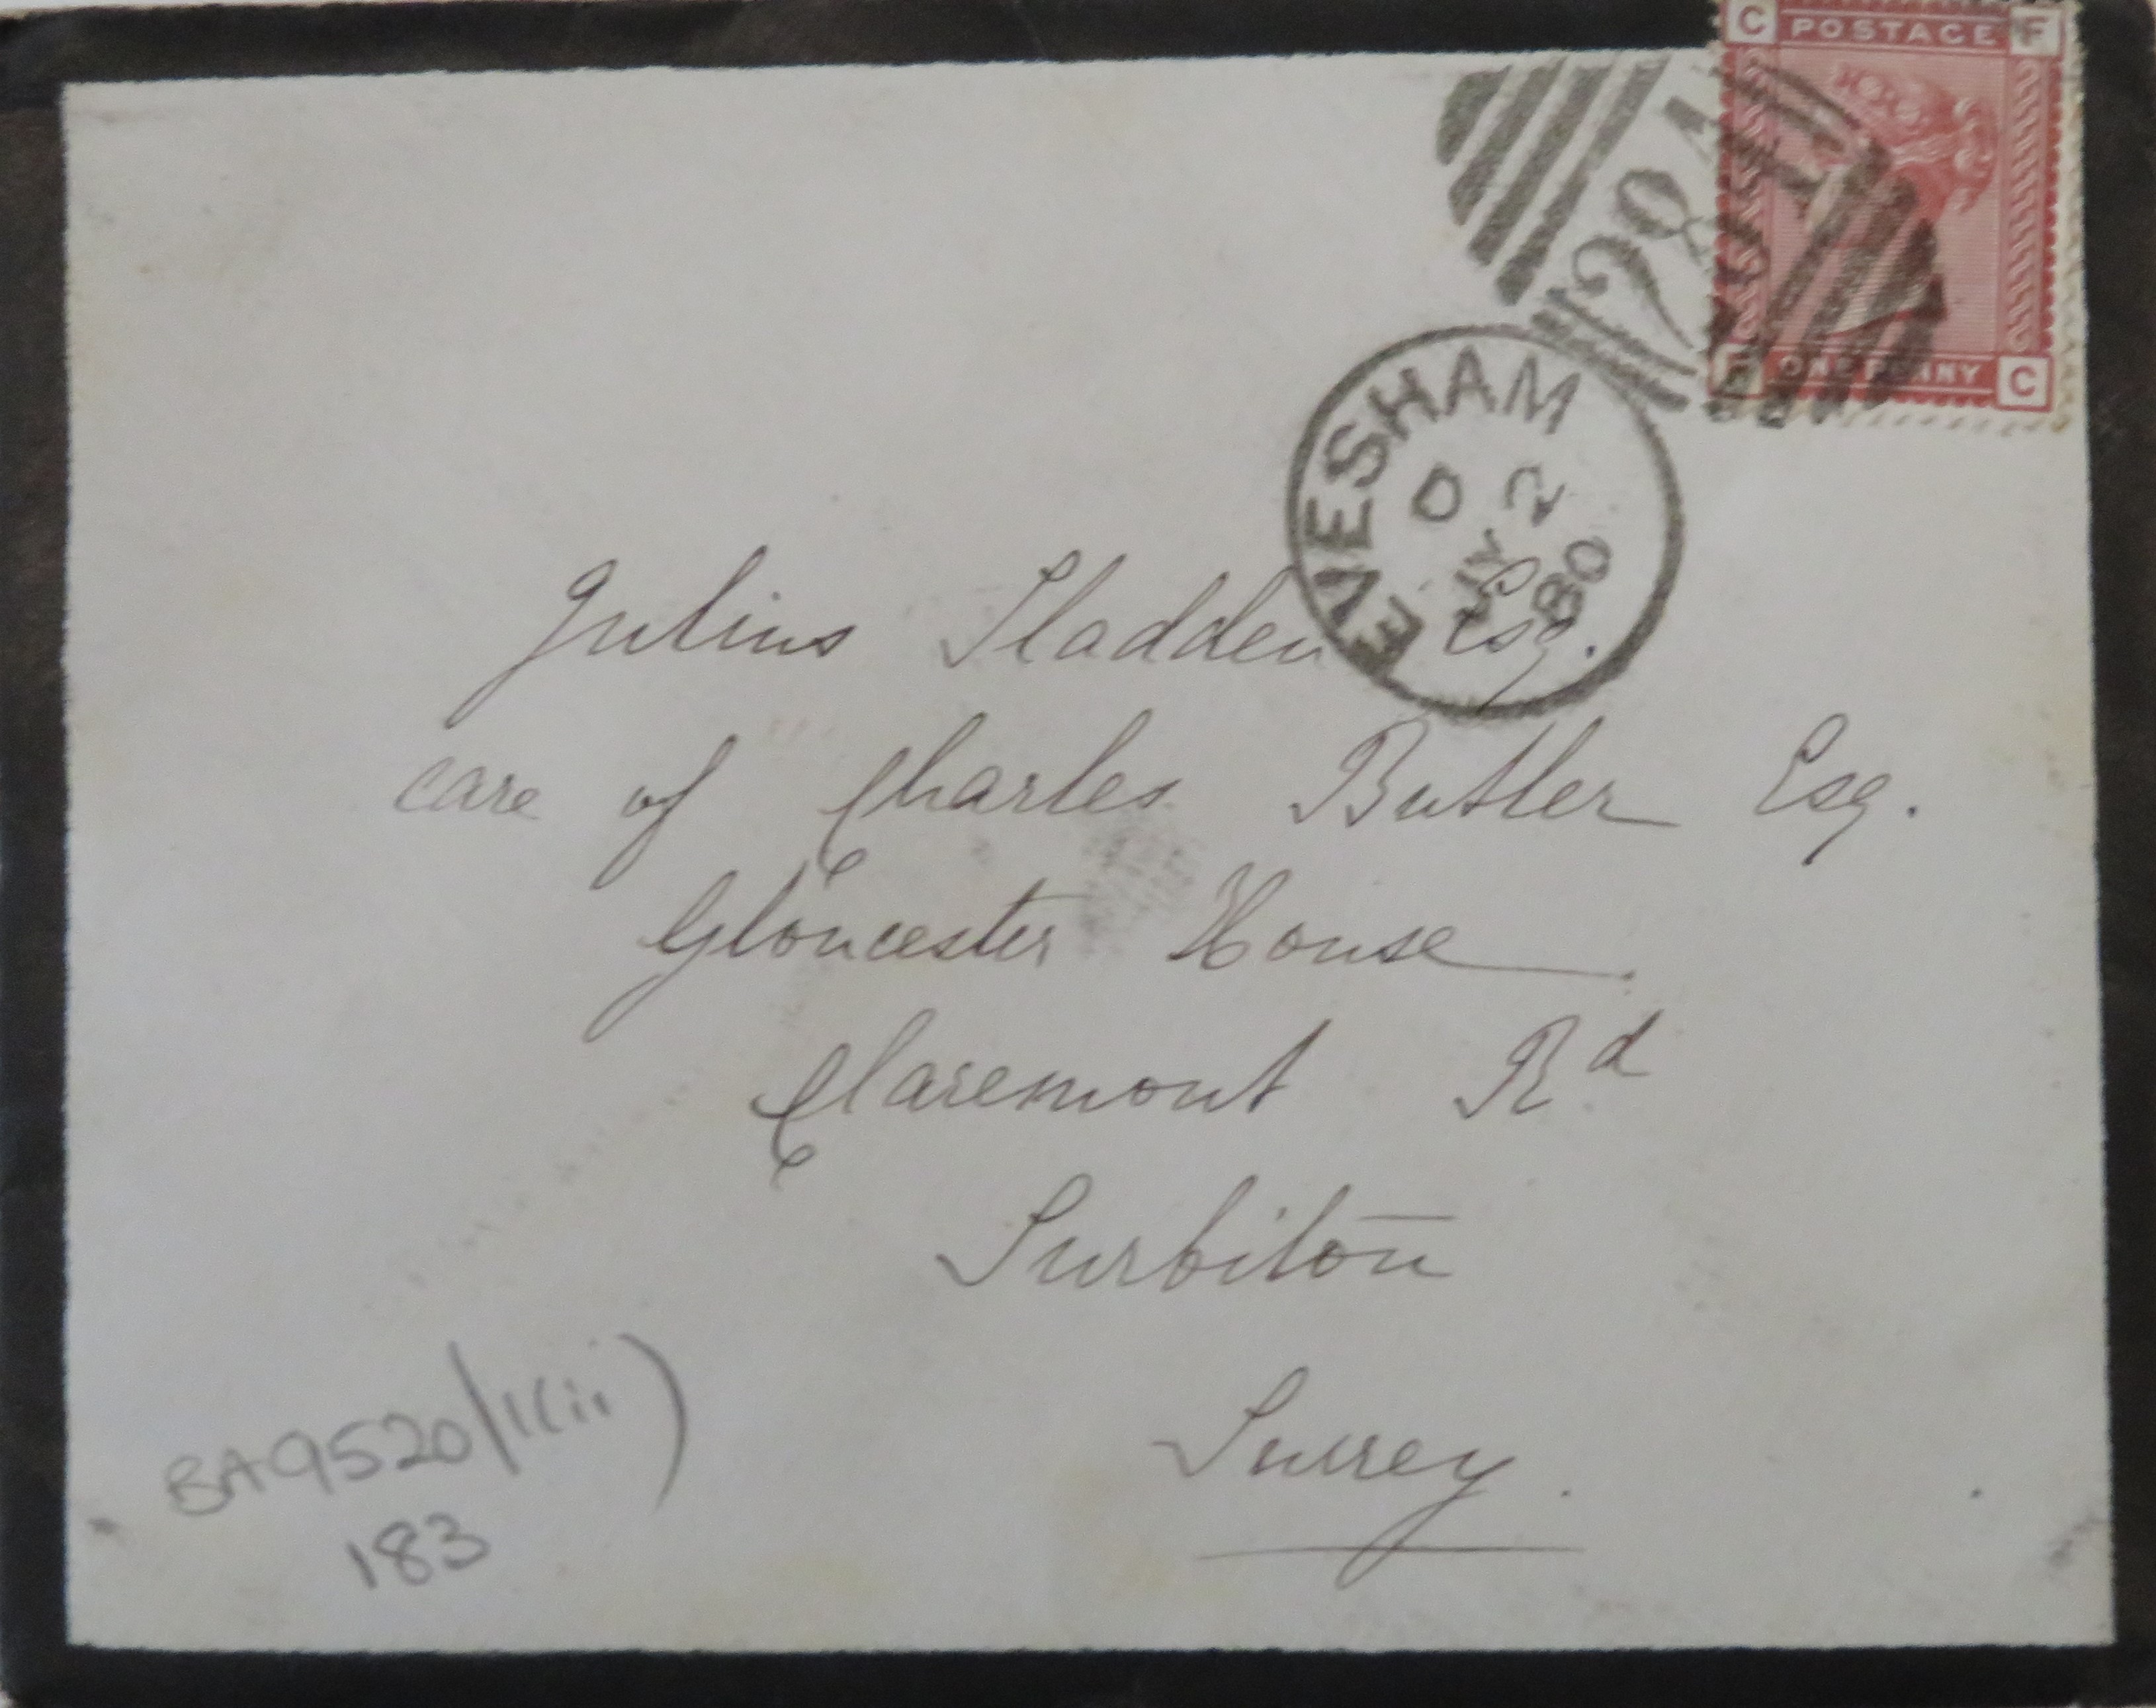 C POSTAGE F
284
ONE PENNY C
EVESHAM
D
JY 2
80
Julius Sladden Esq.
care of Charles Butler Esq.
Gloucester House
Claremont Rd
Surbiton
Surrey.
BA9520/1(ii)
183